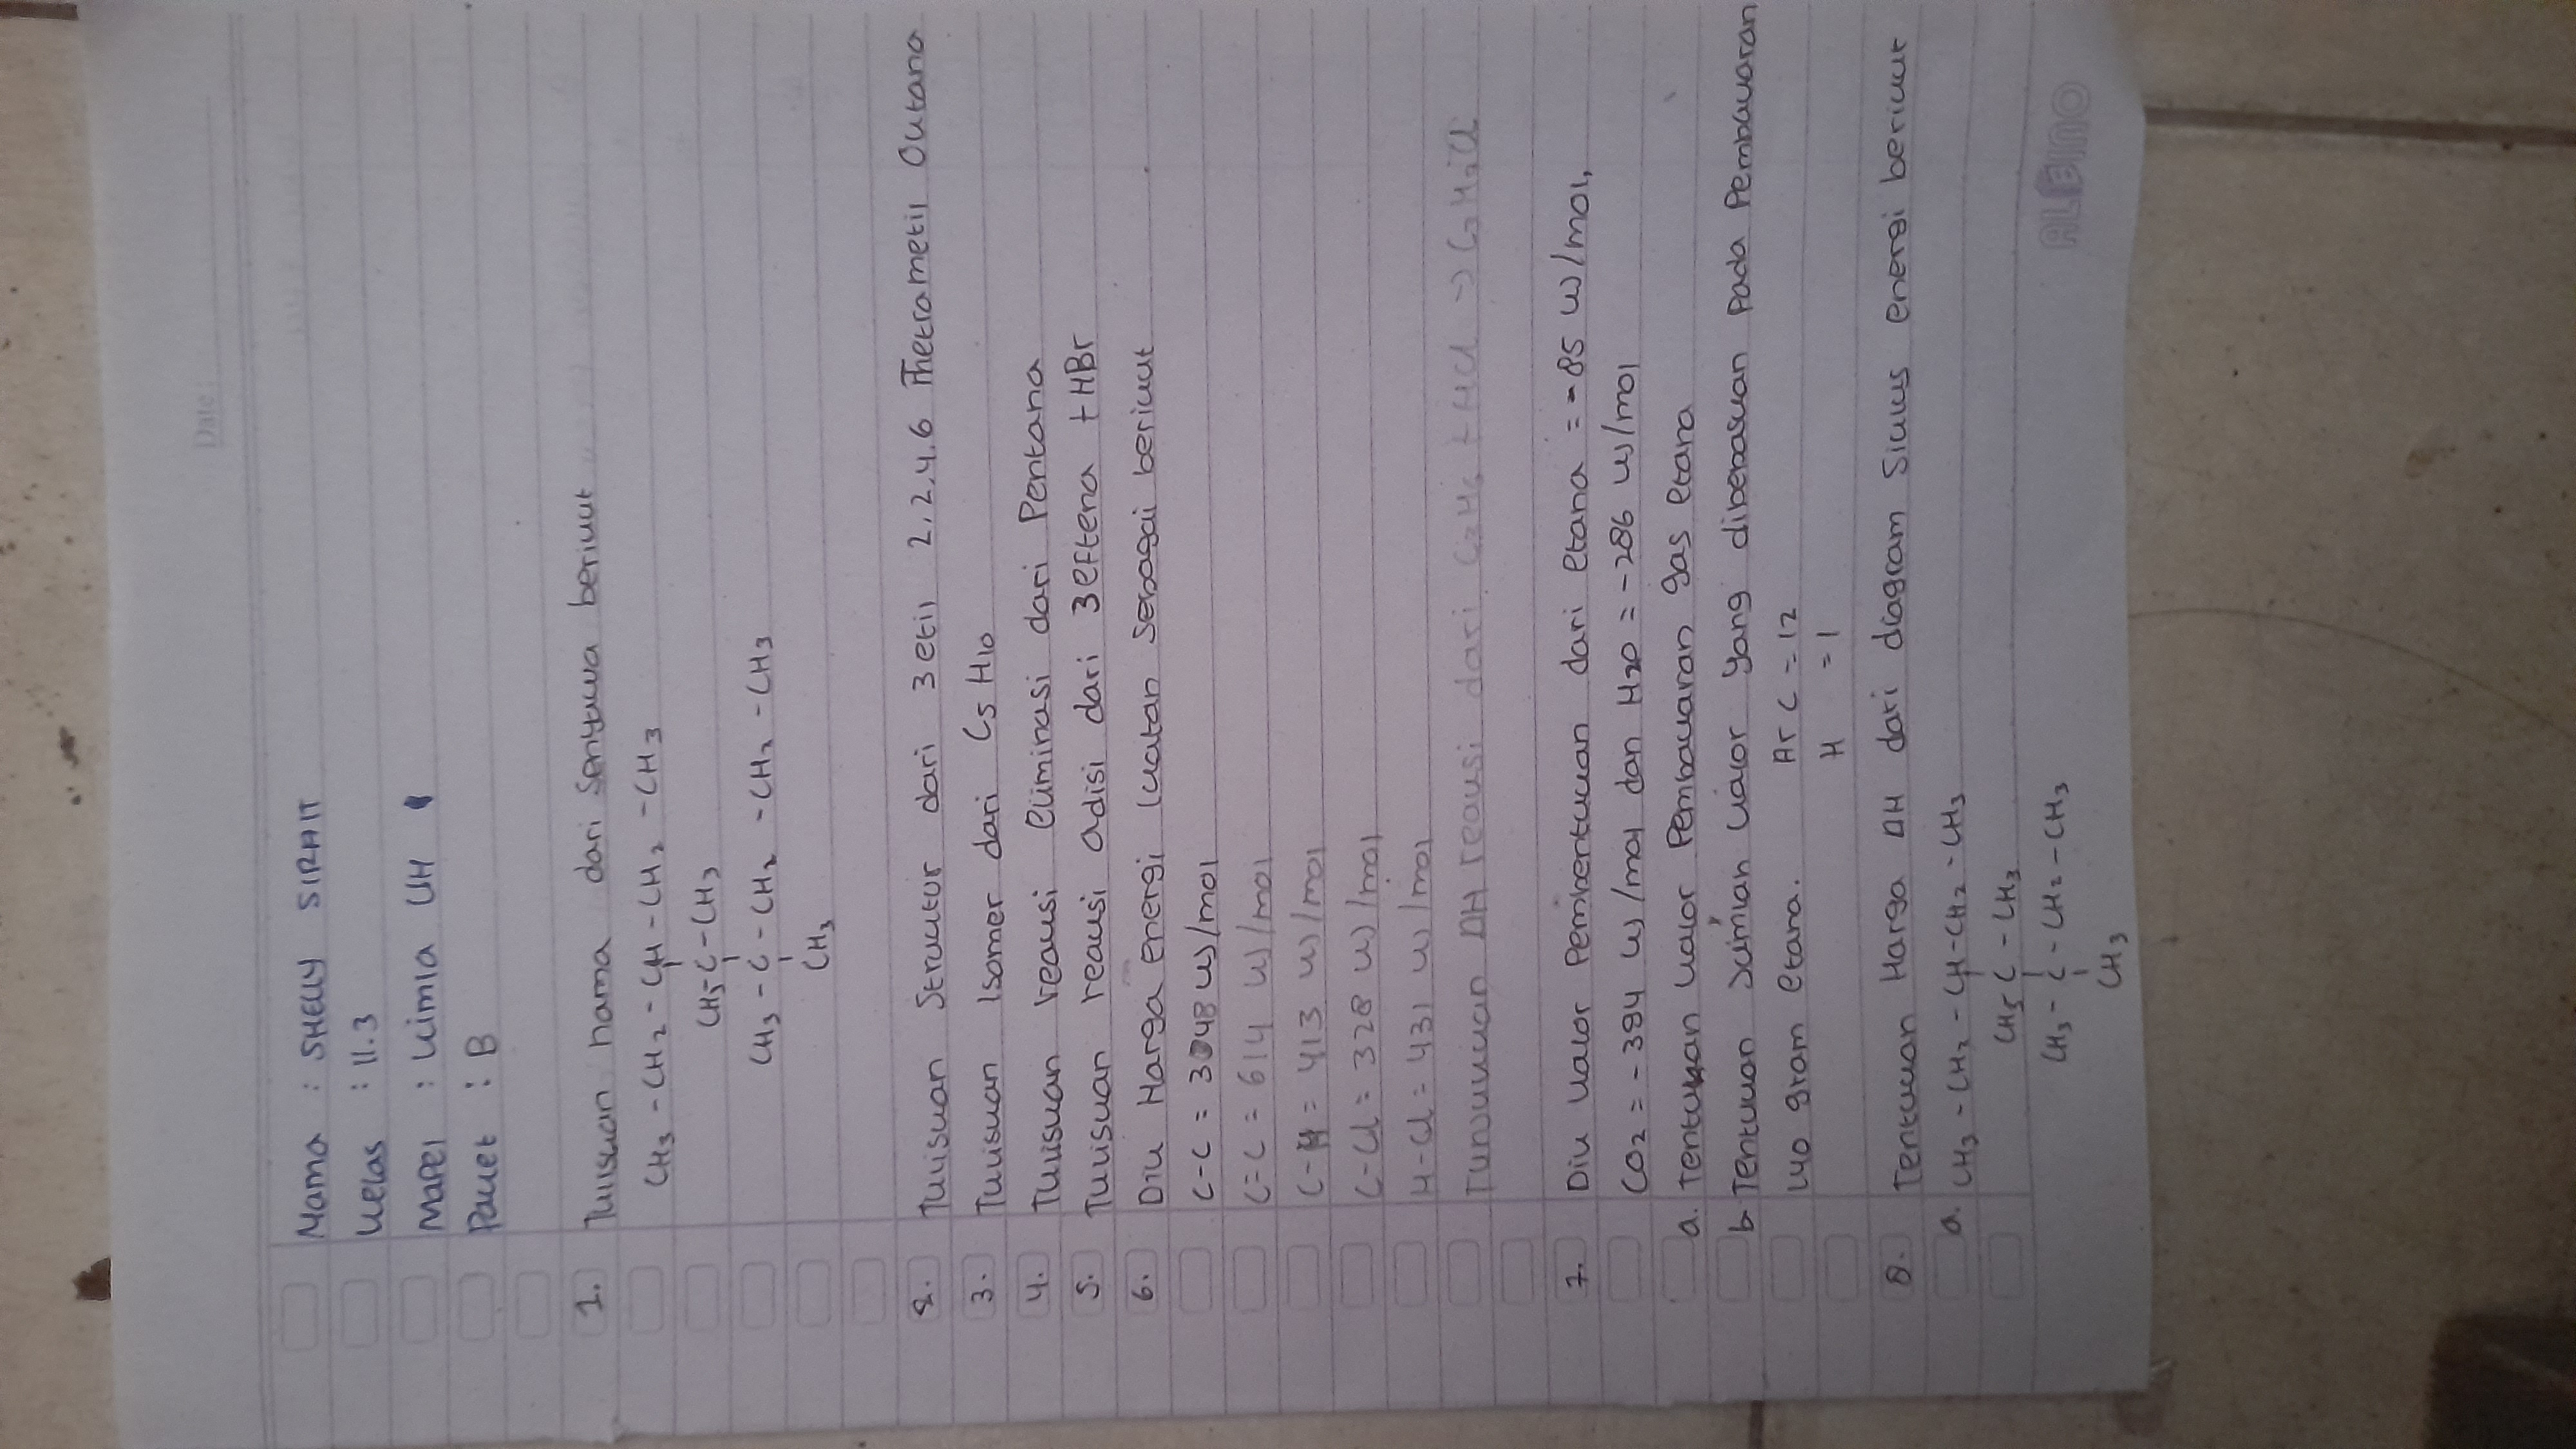 Date:
Nama : SHELLY SIRAIT
Kelas : 11.3
Mapel : Kimia UH
Paket : B
1. Tuliskan nama dari Senyawa berikut
CH3 - CH2 - CH - CH2 - CH3
CH3- C - CH3
CH3 - C - CH2 - CH2 - CH3
CH3
2. Tuliskan Struktur dari 3 etil 2,2,4,6 Thetrametil Oktana
3. Tuliskan Isomer dari C5 H10
4. Tuliskan reaksi Eliminasi dari Pentana
5. Tuliskan reaksi adisi dari 3 eftena + HBr
6. Dik Harga energi Ikatan Sebagai berikut
C-C = 348 kJ/mol
C=C = 614 kJ/mol
C-H = 413 kJ/mol
C-Cl = 328 kJ/mol
H-Cl = 431 kJ/mol
ΔH reaksi dari + HCl →
7. Dik kalor Pembentukan dari etana = -85 kJ/mol,
CO2 = -394 kJ/mol dan H2O = -286 kJ/mol
a. Tentukan kalor Pembakaran gas etana
b Tentukan Jumlah kalor yang dibebaskan pada Pembakaran
140 gram etana. Ar C = 12
H = 1
8. Tentukan Harga ΔH dari diagram Siklus energi berikut
a. CH3 - CH2 - CH - CH2 - CH3
CH3 C - CH3
CH3 - C - CH2 - CH3
CH3
ALBINO